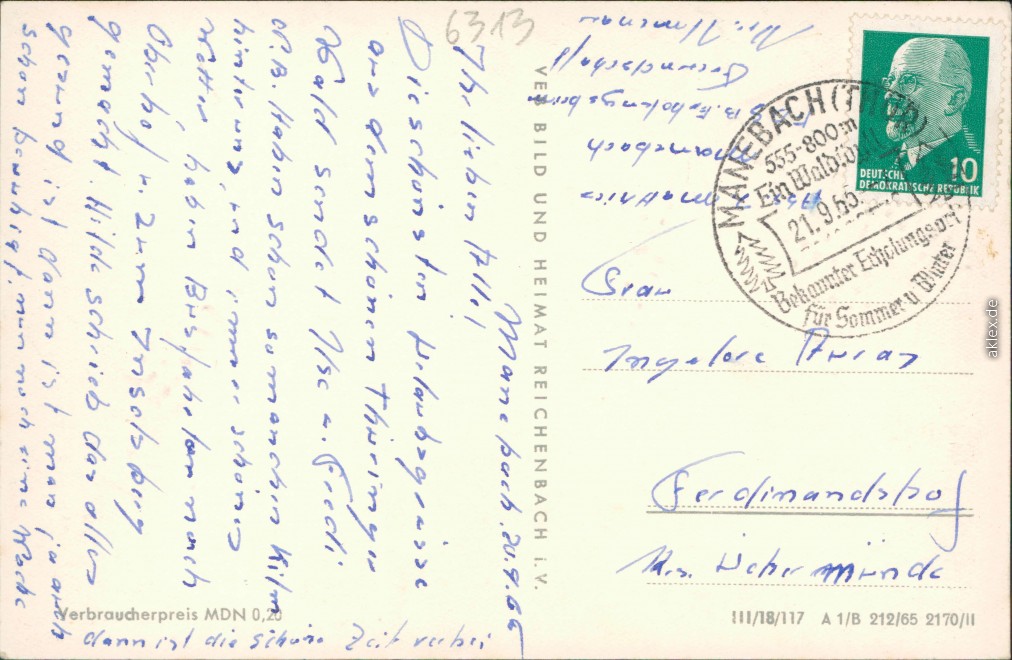 6313
Manebach. 20.9.65
Ihr lieben Alle!
Die schönsten Urlaubsgrüsse
aus dem schönen Thüringer
Wald sendet Ilse u. Friedi.
N.B. Haben schon so manchen Kilm
hinter uns, und immer schönes
Wetter, haben Busfahrten nach
Oberhof u. zum Inselsberg
gemacht. Hilde schrieb das alles
gesund ist dann ist man ja auch
schon beruhigt, nun noch eine Woche
dann ist die schöne Zeit vorbei
VEB BILD UND HEIMAT REICHENBACH i. V.
Verbraucherpreis MDN 0,20
Manebach
Kr. Ilmenau
MANEBACH (THÜR)
555-800m
Ein Waldidyll
21.9.65
Bekannter Erholungsort
für Sommer u Winter
10
DEUTSCHE
DEMOKRATISCHE REPUBLIK
Frau
Ingelore
Ferdinandshof
Krs. Ückermünde
III/18/117 A 1/B 212/65 2170/II
aklex.de